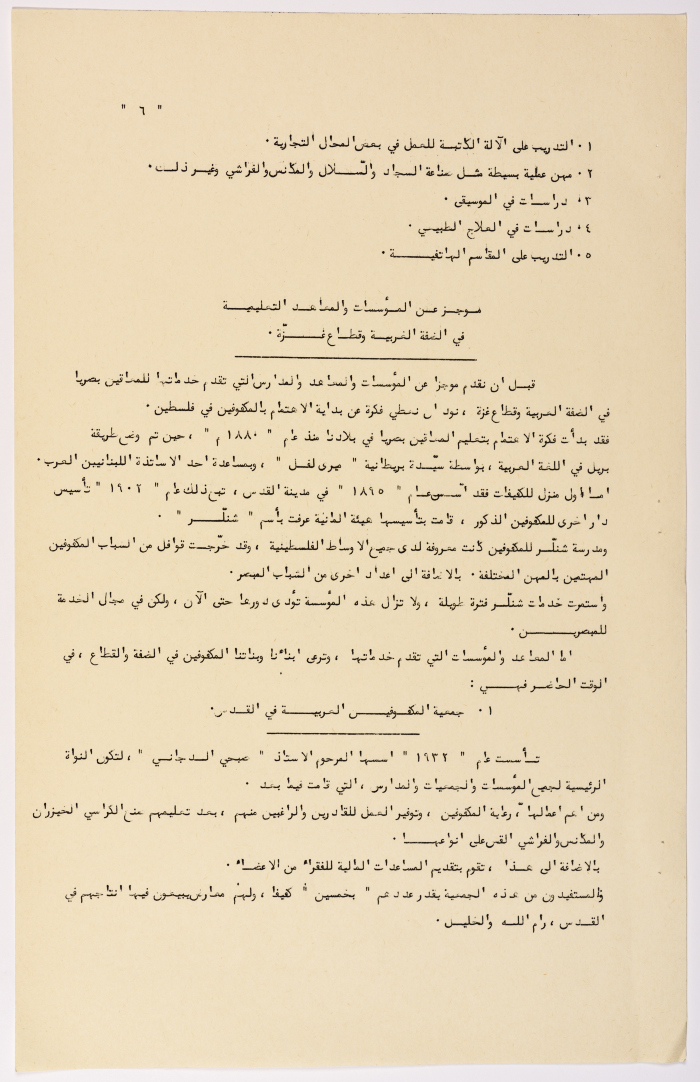 " ٦ "
١٠ التدريب على الآلة الكاتبة للعمل في بعض المحال التجارية ٠
٢٠ مهن عملية بسيطة مثل صناعة السجاد والسّلال والمكانس والفراشي وغير ذلك ٠
٣٠ دراسات في الموسيقى ٠
٤٠ دراسات في العلاج الطبيعي ٠
٥٠ التدريب على المقاسم الهاتفية ٠
موجز عن المؤسسات والمعاهد التعليمية
في الضفة الغربية وقطاع غزّة ٠
قبل ان نقدم موجزا عن المؤسسات والمعاهد والمدارس التي تقدم خدماتها للمعاقين بصريا
في الضفة الغربية وقطاع غزة ، نود ان نعطي فكرة عن بداية الاهتمام بالمكفوفين في فلسطين ٠
فقد بدأت فكرة الاهتمام بتعليم المعاقين بصريا في بلادنا منذ عام " ١٨٨٠ م " ، حين تم وضع طريقة
بريل في اللغة العربية ، بواسطة سيّدة بريطانية " ميري لفل " ، وبمساعدة احد الاساتذة اللبنانيين العرب ٠
اما اول منزل للكفيفات فقد اسّس عام " ١٨٩٥ " في مدينة القدس ، تبع ذلك عام " ١٩٠٢ " تأسيس
دار اخرى للمكفوفين الذكور ، قامت بتأسيسها هيئة المانية عرفت بأسم " شنلّر " ٠
ومدرسة شنلّر للمكفوفين كانت معروفة لدى جميع الاوساط الفلسطينية ، وقد خرّجت قوافل من الشباب المكفوفين
المهتمين بالمهن المختلفة ٠ بالاضافة الى اعداد اخرى من الشباب المبصر ٠
واستمرت خدمات شنلّر فترة طويلة ، ولا تزال هذه المؤسسة تؤدى دورها حتى الآن ، ولكن في مجال الخدمة
للمبصرين ٠
اما المعاهد والمؤسسات التي تقدم خدماتها ، وترعى ابناءنا وبناتنا المكفوفين في الضفة والقطاع ، في
الوقت الحاضر فهي :
١٠ جمعية المكفوفين العربية في القدس٠
تأسست عام " ١٩٣٢ " اسسها المرحوم الاستاذ " صبحي الدجاني " ، لتكون النواة
الرئيسية لجميع المؤسسات والجمعيات والمدارس ، التي قامت فيما بعد ٠
ومن اهم اعمالها ، رعاية المكفوفين ، وتوفير العمل للقادرين والراغبين منهم ، بعد تعليمهم صنع الكراسي الخيزران
والمكانس والفراشي القش على انواعها ٠
بالاضافة الى هذا ، تقوم بتقديم المساعدات المالية للفقراء من الاعضاء ٠
والمستفيدون من هذه الجمعية يقدر عددهم " بخمسين " كفيفا ، ولهم معارض يبيعون فيها انتاجهم في
القدس ، رام الله والخليل ٠